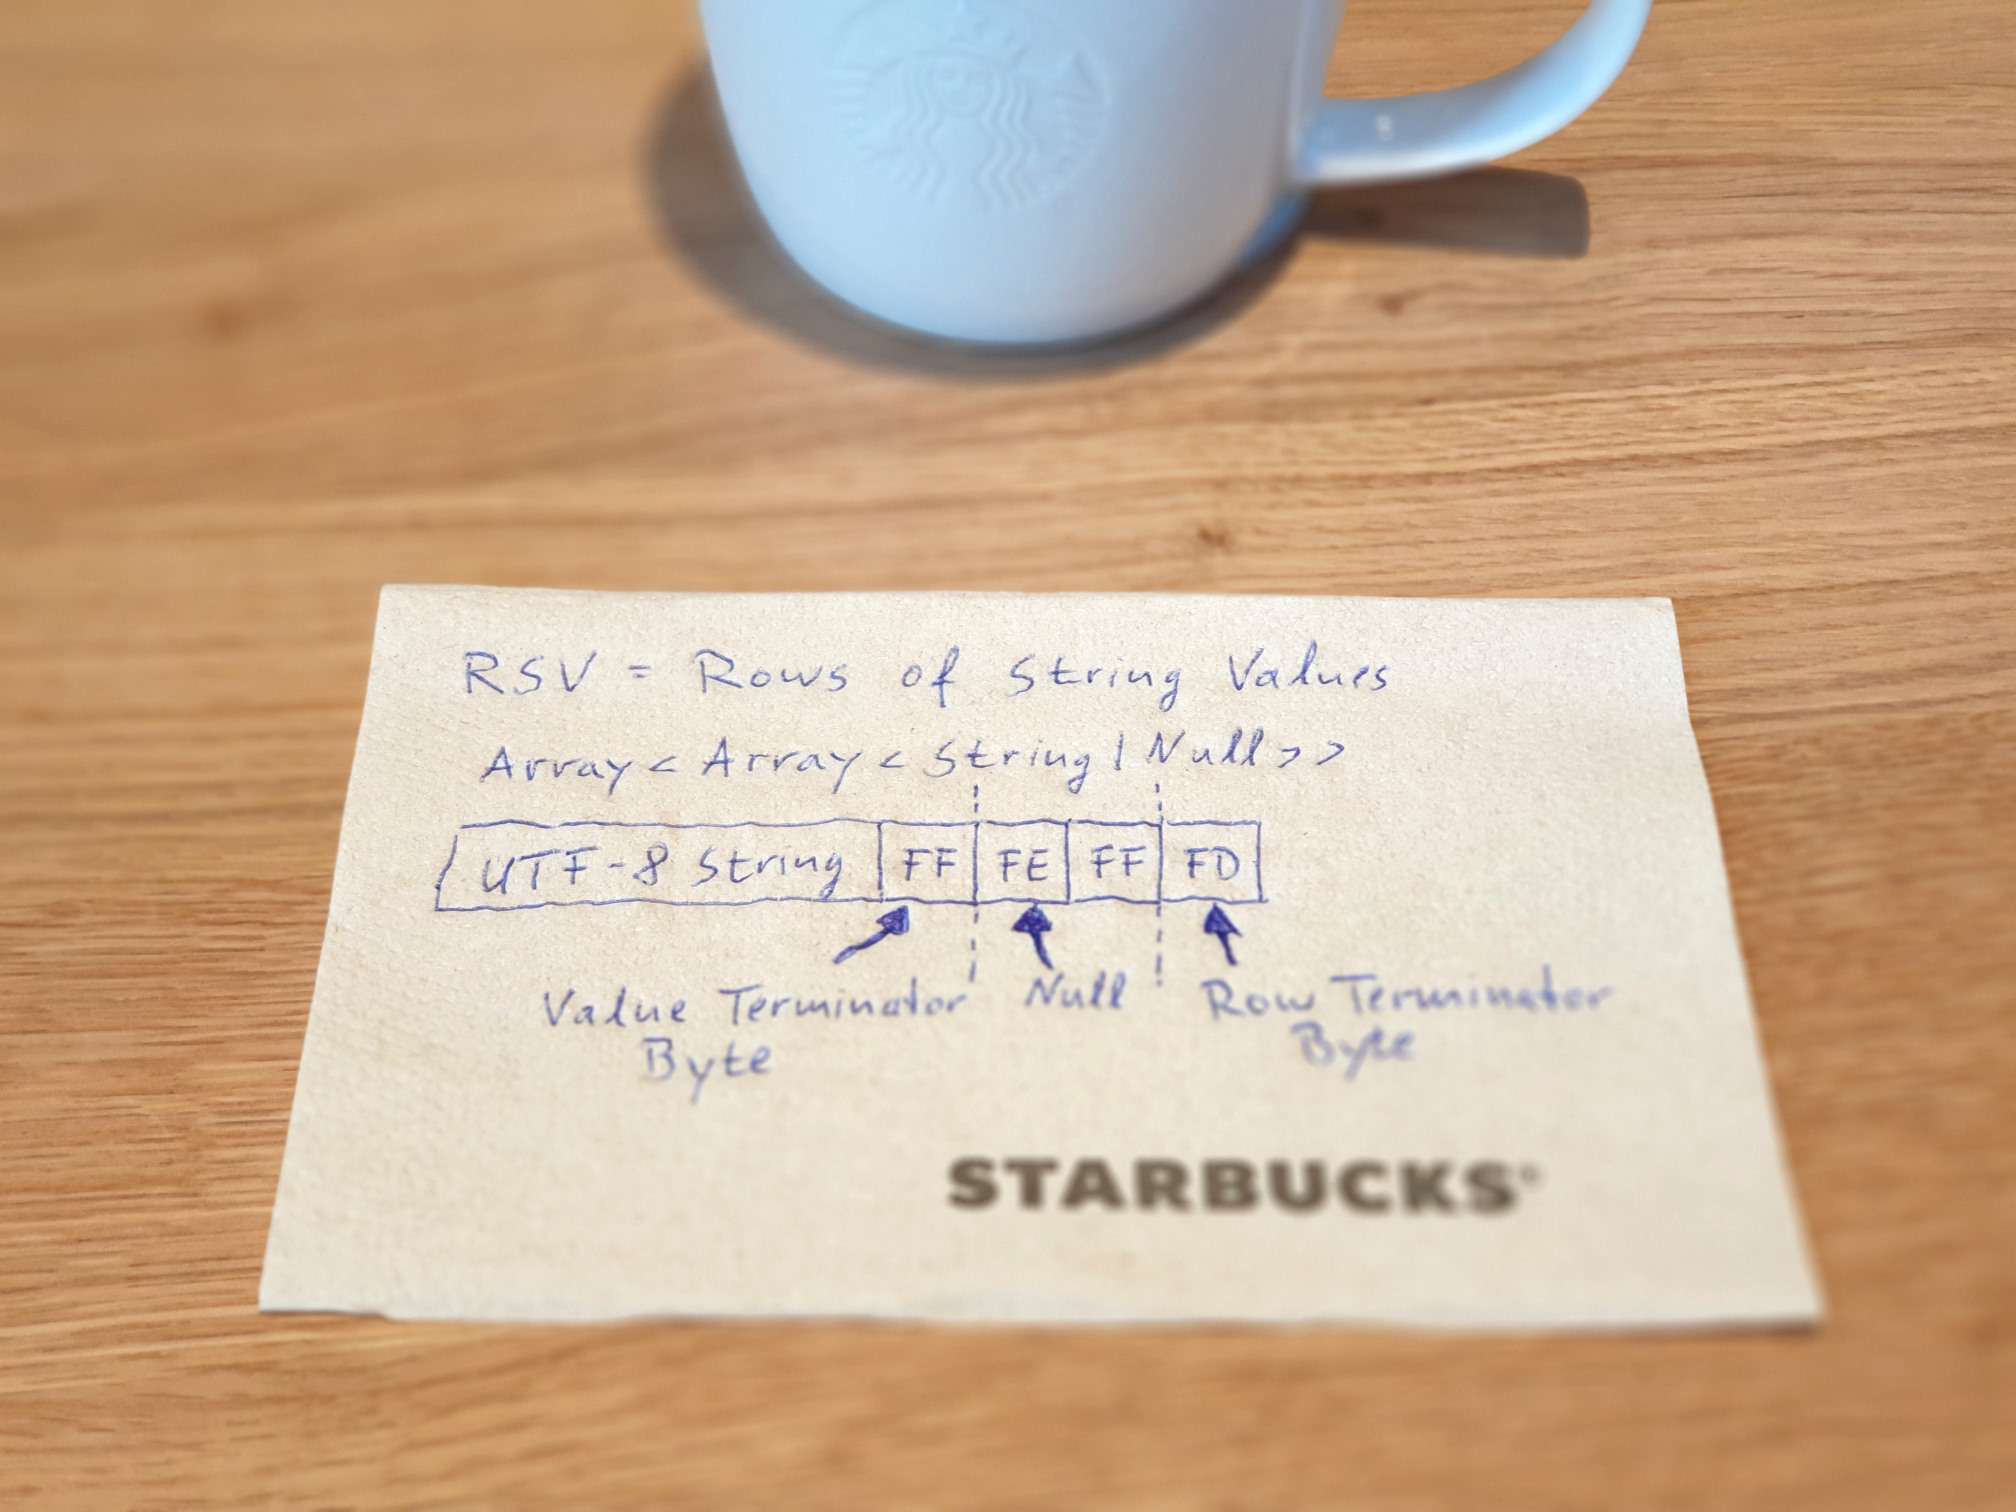 RSV = Rows of String Values
Array < Array < String | Null > >
UTF-8 String FF FE FF FD
Value Terminator Byte
Null
Row Terminator Byte
STARBUCKS®